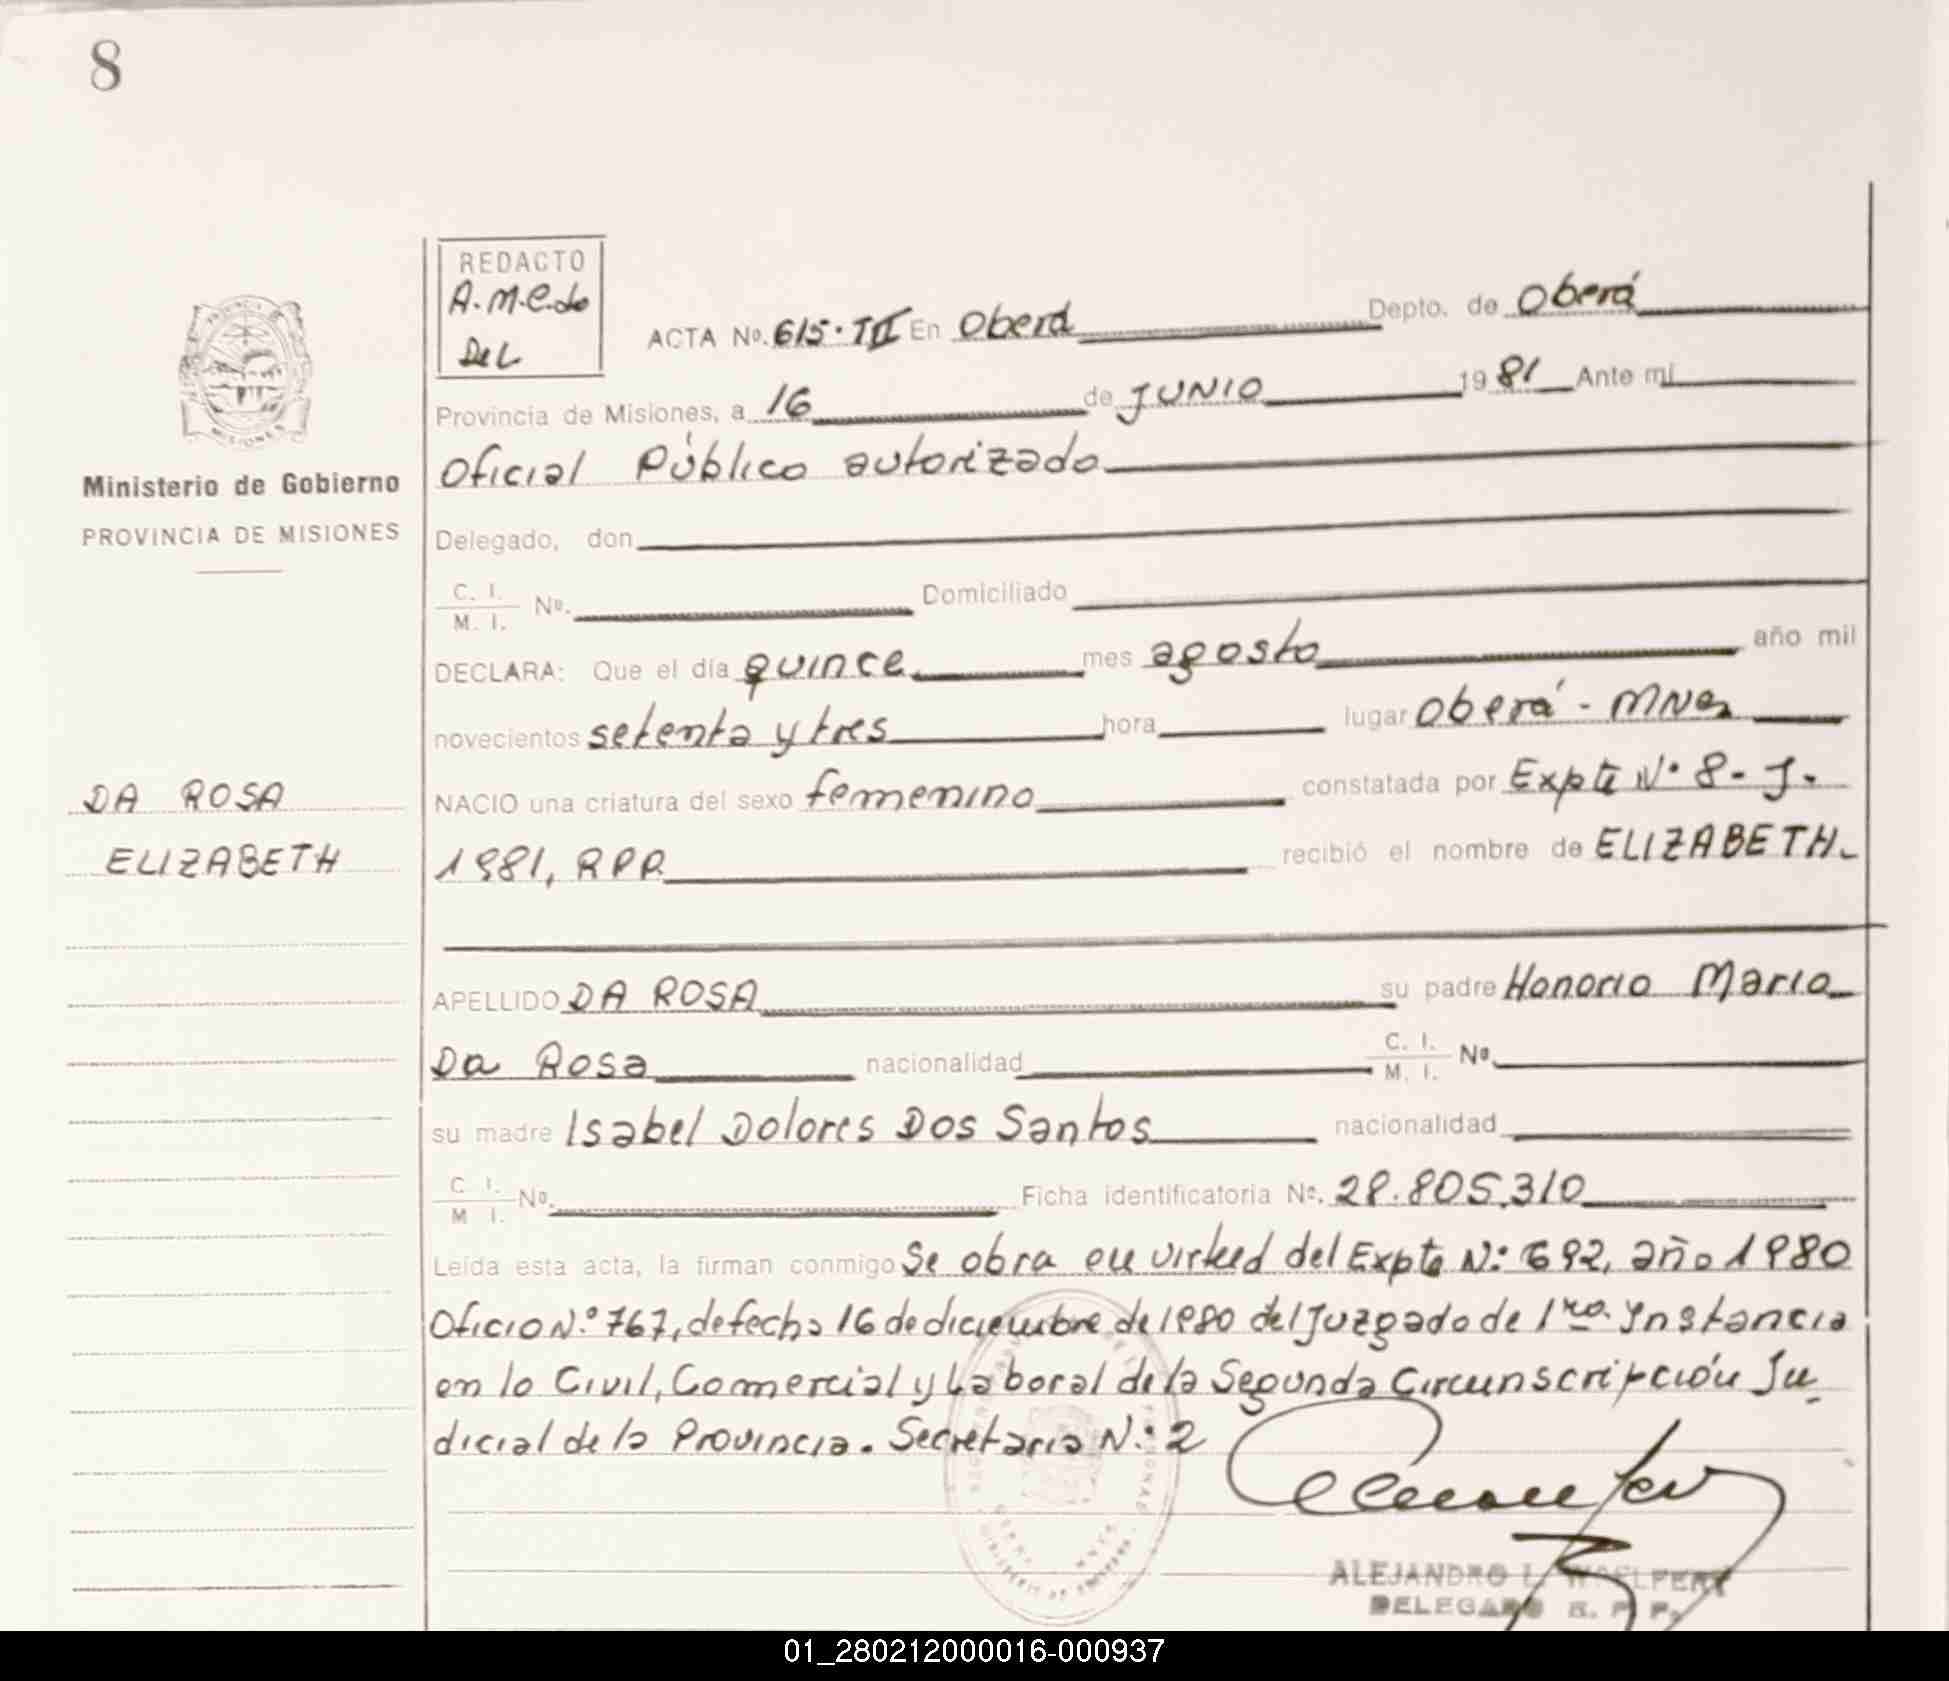 8
REDACTO
A.M.C.do
Del
ACTA No. 615·III En Oberá Depto. de Oberá
Provincia de Misiones, a 16 de JUNIO 1981 Ante mí
Oficial Público autorizado
Ministerio de Gobierno
PROVINCIA DE MISIONES
Delegado, don
C. I.
M. I. No. Domiciliado
DECLARA: Que el día quince mes agosto año mil
novecientos setenta y tres hora lugar Oberá - MNes
DA ROSA
ELIZABETH
NACIO una criatura del sexo femenino constatada por Expte Nº 8- J-
1981, RPP. recibió el nombre de ELIZABETH.
APELLIDO DA ROSA su padre Honorio Mario
Da Rosa nacionalidad C. I.
M. I. No
su madre Isabel Dolores Dos Santos nacionalidad
C. I.
M I. No. Ficha identificatoria No. 28.805.310
Leída esta acta, la firman conmigo Se obra en virtud del Expte Nº 692, año 1980
Oficio N.º 767, de fecha 16 de diciembre de 1980 del Juzgado de 1ra. Instancia
en lo Civil, Comercial y Laboral de la Segunda Circunscripción Ju
dicial de la Provincia. Secretaria N.º 2
ALEJANDRO L.
DELEGADO R. P. P.
01_280212000016-000937